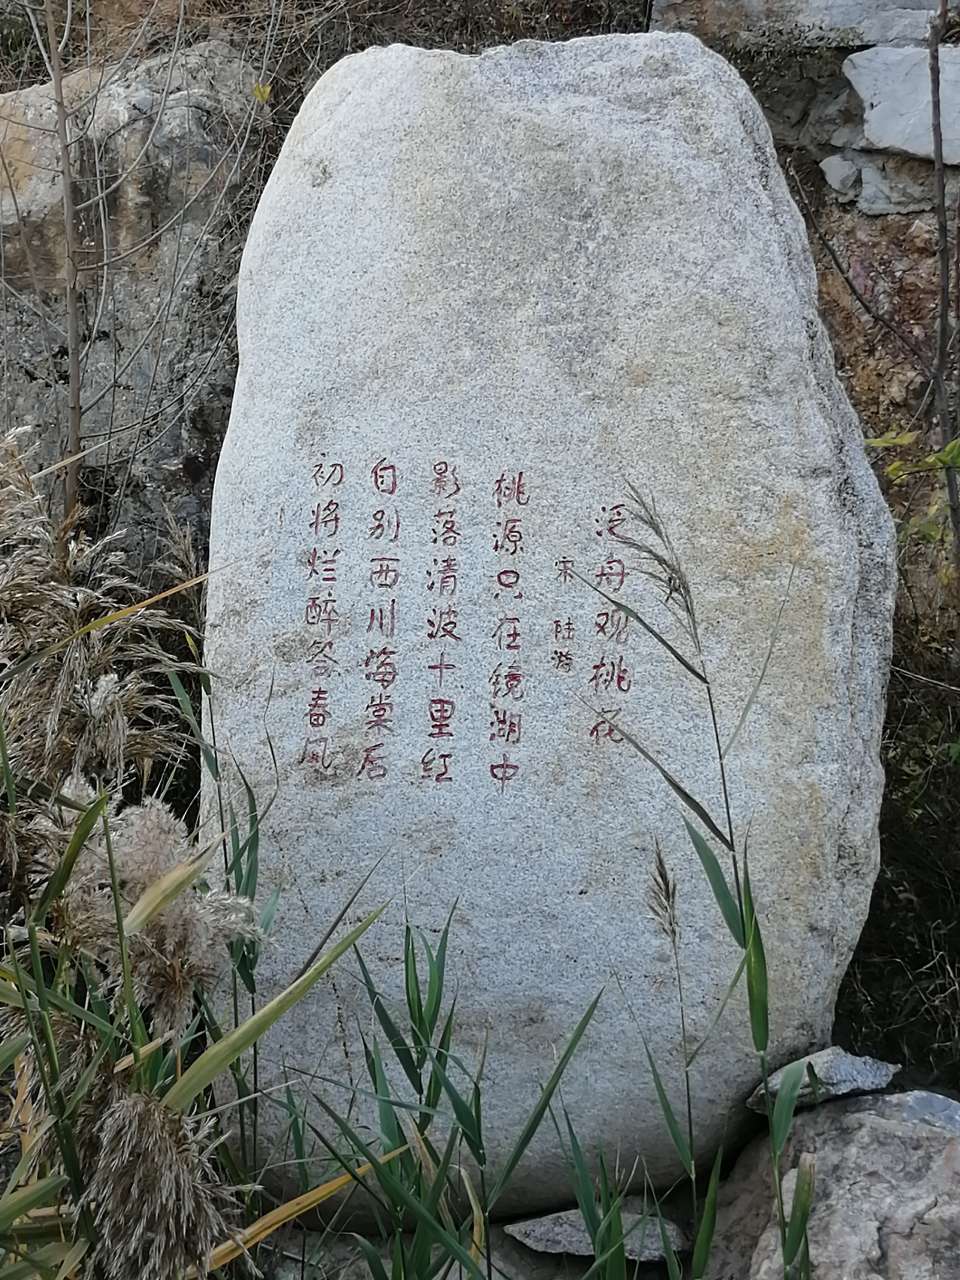 泛舟观桃花
宋 陆游
桃源只在镜湖中
影落清波十里红
自别西川海棠后
初将烂醉答春风